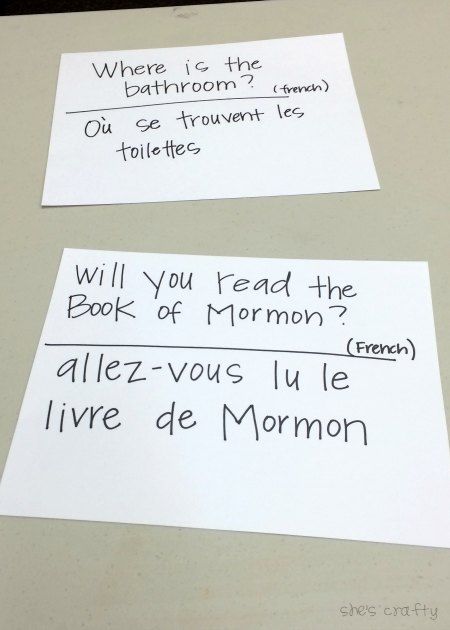 Where is the
bathroom?
(french)
Où se trouvent les
toilettes
Will you read the
Book of Mormon?
(French)
allez-vous lu le
livre de Mormon
she's crafty